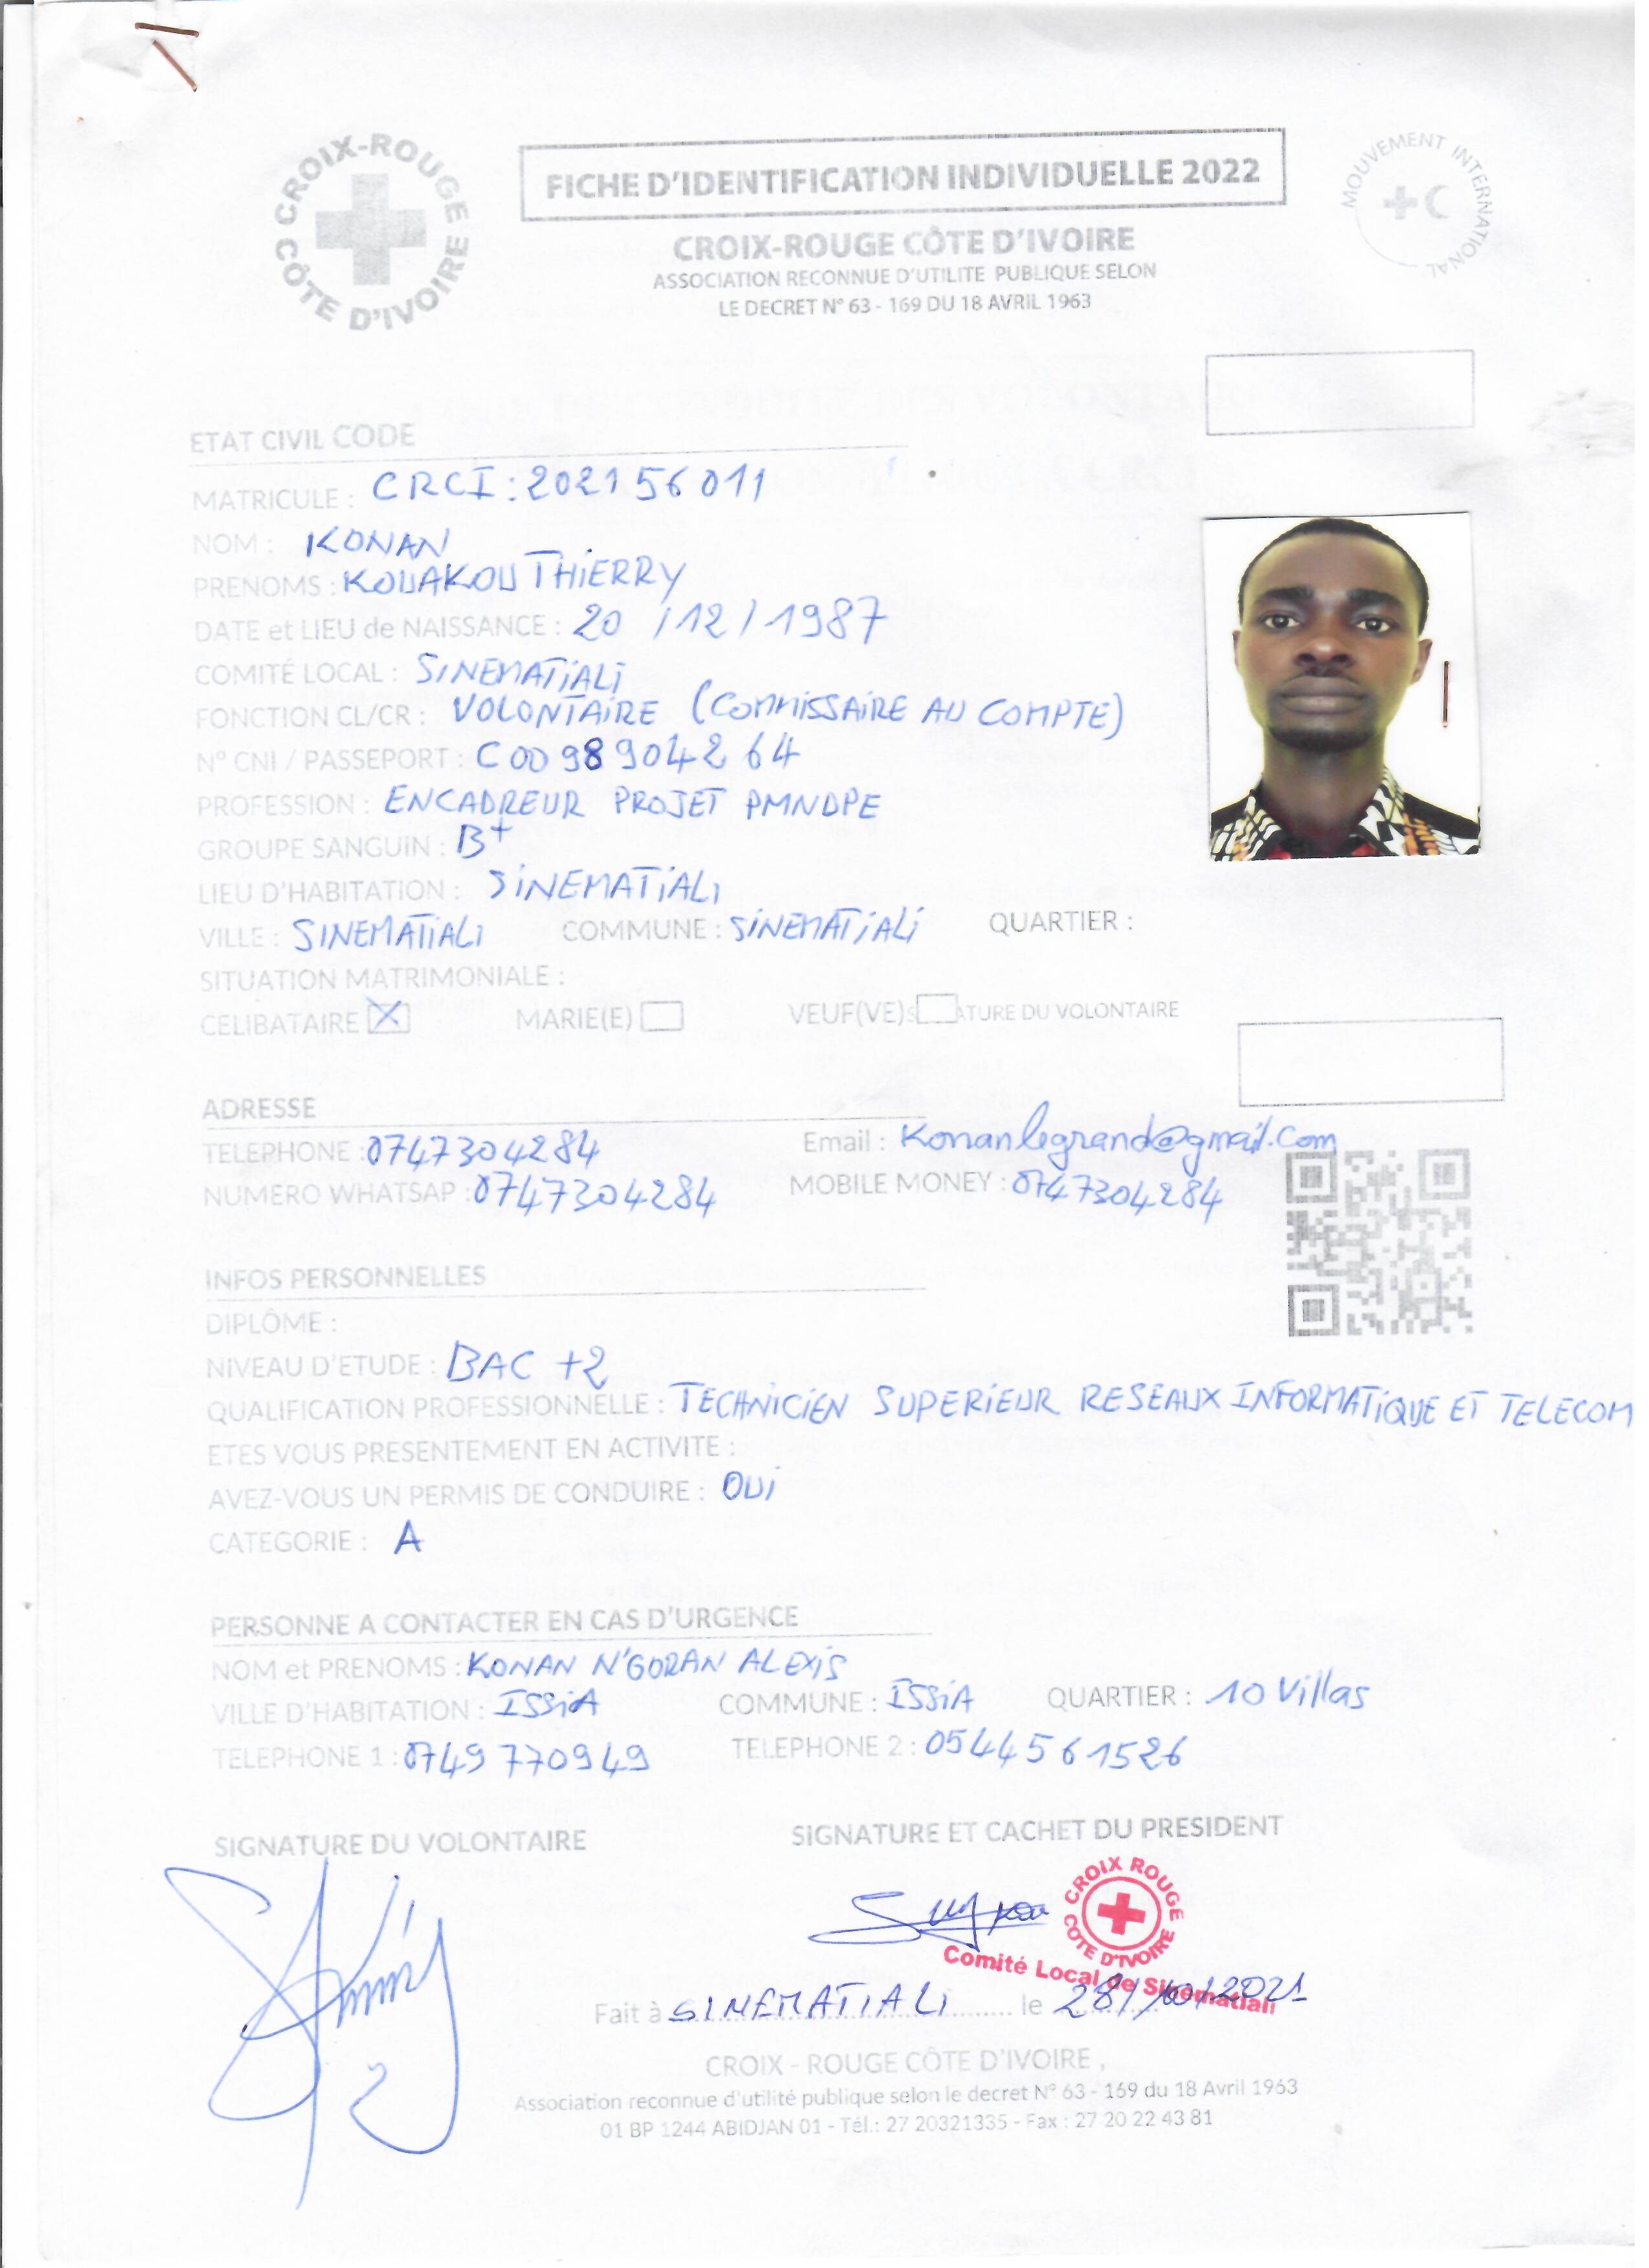 CROIX-ROUGE CÔTE D'IVOIRE
FICHE D'IDENTIFICATION INDIVIDUELLE 2022
MOUVEMENT INTERNATIONAL
CROIX-ROUGE CÔTE D'IVOIRE
ASSOCIATION RECONNUE D'UTILITE PUBLIQUE SELON
LE DECRET N° 63 - 169 DU 18 AVRIL 1963
ETAT CIVIL CODE
MATRICULE : CRCI : 202156011
NOM : KONAN
PRENOMS : KOUAKOU THIERRY
DATE et LIEU de NAISSANCE : 20 /12/1987
COMITÉ LOCAL : SINEMATIALI
FONCTION CL/CR : VOLONTAIRE (COMMISSAIRE AU COMPTE)
N° CNI / PASSEPORT : C00989904264
PROFESSION : ENCADREUR PROJET PMNDPE
GROUPE SANGUIN : B+
LIEU D'HABITATION : SINEMATIALI
VILLE : SINEMATIALI COMMUNE : SINEMATIALI QUARTIER :
SITUATION MATRIMONIALE :
CELIBATAIRE X MARIE(E) VEUF(VE) ATURE DU VOLONTAIRE
ADRESSE
TELEPHONE : 0747304284 Email : Konanlegrand@gmail.Com
NUMERO WHATSAP : 0747304284 MOBILE MONEY : 0747304284
INFOS PERSONNELLES
DIPLÔME :
NIVEAU D'ETUDE : BAC +2
QUALIFICATION PROFESSIONNELLE : TECHNICIEN SUPERIEUR RESEAUX INFORMATIQUE ET TELECOM
ETES VOUS PRESENTEMENT EN ACTIVITE :
AVEZ-VOUS UN PERMIS DE CONDUIRE : OUI
CATEGORIE : A
PERSONNE A CONTACTER EN CAS D'URGENCE
NOM et PRENOMS : KONAN N'GORAN ALEXIS
VILLE D'HABITATION : ISSIA COMMUNE : ISSIA QUARTIER : 10 Villas
TELEPHONE 1 : 0749770949 TELEPHONE 2 : 0544561526
SIGNATURE DU VOLONTAIRE SIGNATURE ET CACHET DU PRESIDENT
CROIX ROUGE COTE D'IVOIRE
Comité Local de Sinématiali
Fait à SINEMATIALI le 28/10/2021
CROIX - ROUGE CÔTE D'IVOIRE ,
Association reconnue d'utilité publique selon le decret N° 63 - 169 du 18 Avril 1963
01 BP 1244 ABIDJAN 01 - Tél.: 27 20321335 - Fax : 27 20 22 43 81